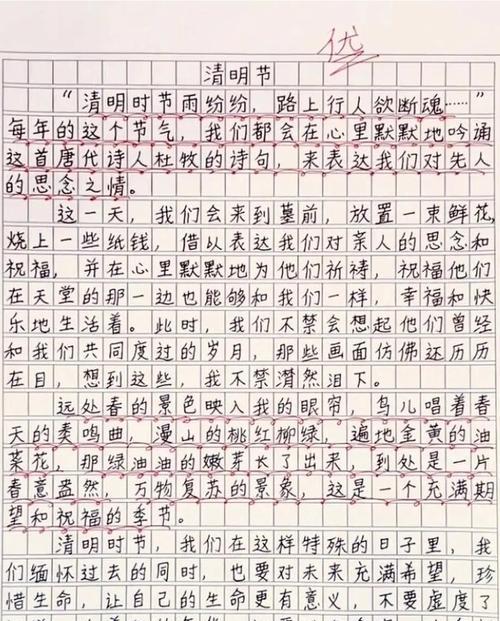 优
清明节
“清明时节雨纷纷，路上行人欲断魂……”
每年的这个节气，我们都会在心里默默地吟诵
这首唐代诗人杜牧的诗句，来表达我们对先人
的思念之情。
这一天，我们会来到墓前，放置一束鲜花，
烧上一些纸钱，借以表达我们对亲人的思念和
祝福，并在心里默默地为他们祈祷，祝福他们
在天堂的那一边也能够和我们一样，幸福和快
乐地生活着。此时，我们不禁会想起他们曾经
和我们共同度过的岁月，那些画面仿佛还历历
在目，想到这些，我不禁潸然泪下。
远处春的景色映入我的眼帘，鸟儿唱着春
天的奏鸣曲，漫山的桃红柳绿，遍地金黄的油
菜花，那绿油油的嫩芽长了出来，到处是一片
春意盎然，万物复苏的景象，这是一个充满期
望和祝福的季节。
清明时节，我们在这样特殊的日子里，我
们缅怀过去的同时，也要对未来充满希望，珍
惜生命，让自己的生命更有意义，不要虚度了